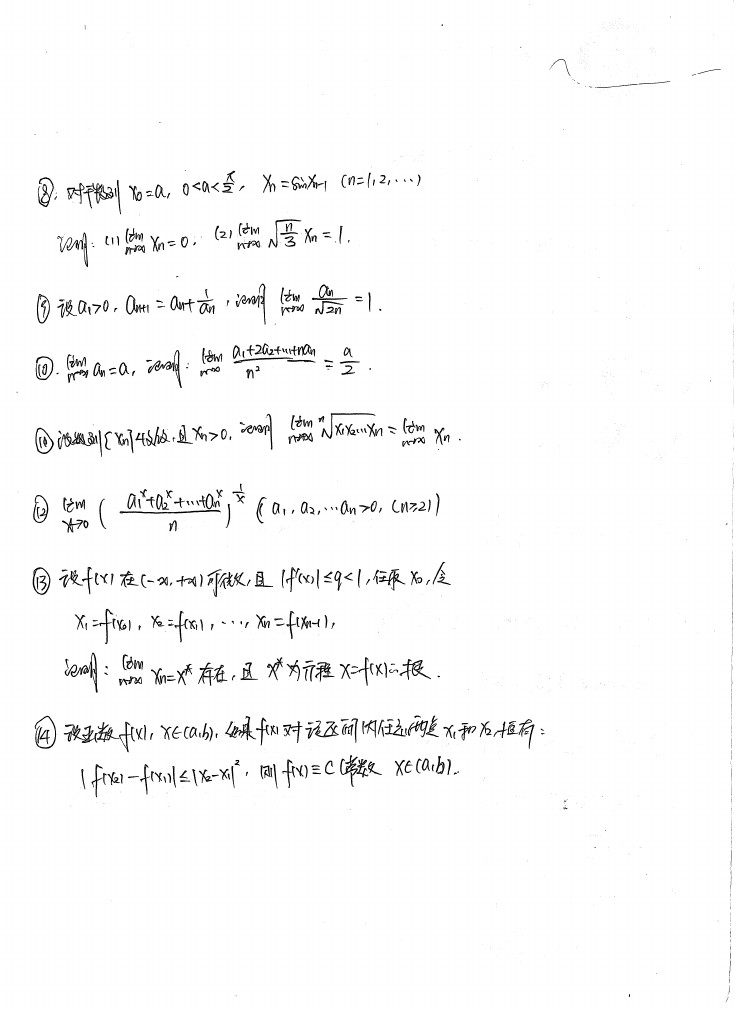 ⑧. 对于数列 x₀=a, 0<a<π/2, xₙ=sin xₙ₋₁ (n=1,2,…)
证明: (1) lim_{n→∞} xₙ=0. (2) lim_{n→∞} √(n/3) xₙ=1.
⑨ 设 a₁>0, aₙ₊₁=aₙ+1/aₙ, 证明 lim_{n→∞} aₙ/√(2n) =1.
⑩. lim_{n→∞} aₙ=a, 证明: lim_{n→∞} (a₁+2a₂+…+naₙ)/n² = a/2.
⑪ 设数列{xₙ}收敛,且xₙ>0, 证明 lim_{n→∞} ⁿ√(x₁x₂…xₙ) = lim_{n→∞} xₙ.
⑫ lim_{x→0} ( (a₁ˣ+a₂ˣ+…+aₙˣ)/n )^{1/x} (a₁, a₂, …aₙ>0, (n≥2))
⑬ 设f(x)在(-∞,+∞)可微, 且 |f'(x)|≤q<1, 任取x₀, 令
x₁=f(x₀), x₂=f(x₁), …, xₙ=f(xₙ₋₁),
证明: lim_{n→∞} xₙ=x* 存在, 且 x*为方程 x=f(x)之根.
⑭ 设函数 f(x), x∈(a,b), 如果f(x)对该区间内任意两点x₁和x₂, 恒有:
|f(x₂)-f(x₁)|≤|x₂-x₁|², 则 f(x)≡C (常数 x∈(a,b).